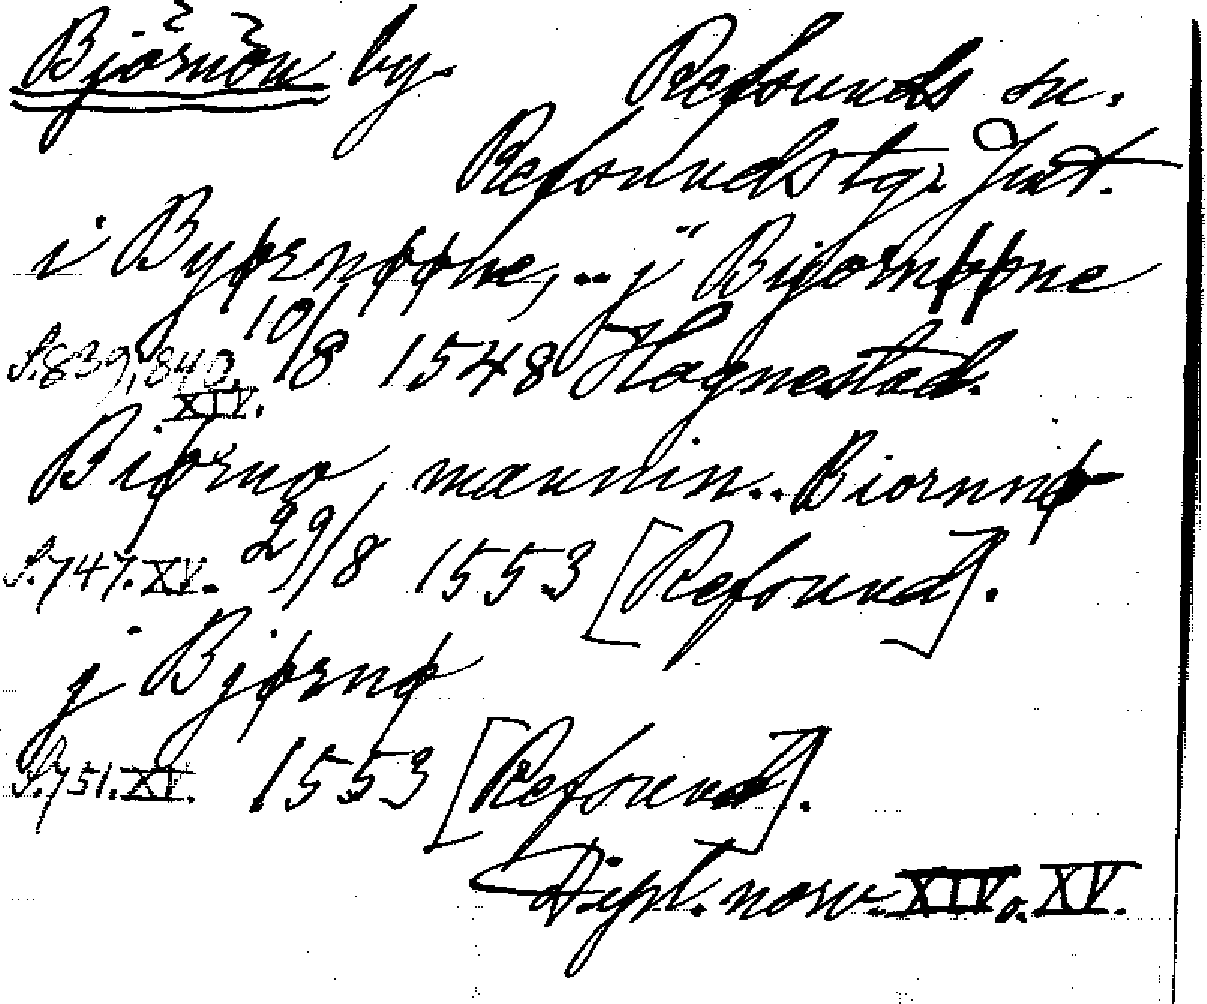 Björnön by. Refsunds sn.
Refsunds tgs. Jmt.
i Bypørnøøne, .. j" Biyornøøne
S.839,840. XIV. 10/8 1548 Hagnestad.
Biørno, mannin.. Biornnø
S.747. XV. 29/8 1553 [Refsund].
j Bjørnø
S.751. XV. 1553 [Refsund].
Dipl. norv. XIV o. XV.